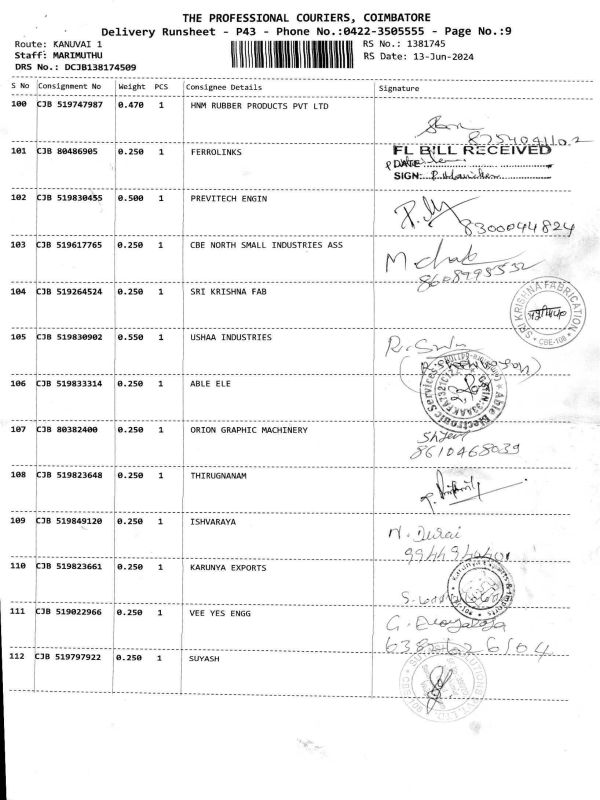 THE PROFESSIONAL COURIERS, COIMBATORE
Delivery Runsheet - P43 - Phone No.:0422-3505555 - Page No.:9
Route: KANUVAI 1
RS No.: 1381745
Staff: MARIMUTHU
RS Date: 13-Jun-2024
DRS No.: DCJB138174509
S No Consignment No Weight PCS Consignee Details Signature
100 CJB 519747987 0.470 1 HNM RUBBER PRODUCTS PVT LTD
101 CJB 80486905 0.250 1 FERROLINKS
FL BILL RECEIVED
DATE:
SIGN:
102 CJB 519830455 0.500 1 PREVITECH ENGIN
8300044824
103 CJB 519617765 0.250 1 CBE NORTH SMALL INDUSTRIES ASS
104 CJB 519264524 0.250 1 SRI KRISHNA FAB
SRI KRISHNA FABRICATION
CBE-108
105 CJB 519830902 0.550 1 USHAA INDUSTRIES
106 CJB 519833314 0.250 1 ABLE ELE
Able Electronic Services
107 CJB 80382400 0.250 1 ORION GRAPHIC MACHINERY
8610468039
108 CJB 519823648 0.250 1 THIRUGNANAM
109 CJB 519849120 0.250 1 ISHVARAYA
N. Durai
110 CJB 519823661 0.250 1 KARUNYA EXPORTS
Karunya Exports & Imports
111 CJB 519022966 0.250 1 VEE YES ENGG
112 CJB 519797922 0.250 1 SUYASH